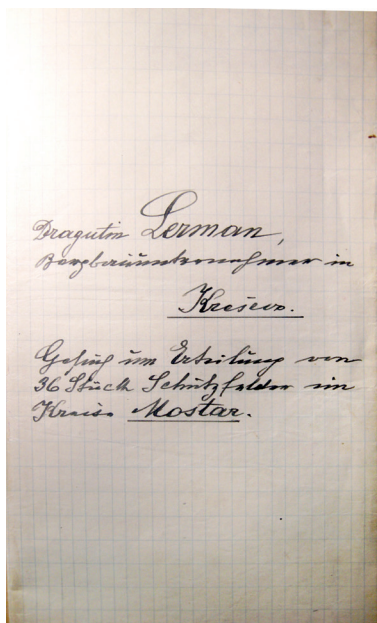 Dragutin Lerman,
Bergbauunternehmer in
Kreševo.
Gesuch um Erteilung von
36 Stück Schutzfelder im
Kreise Mostar.